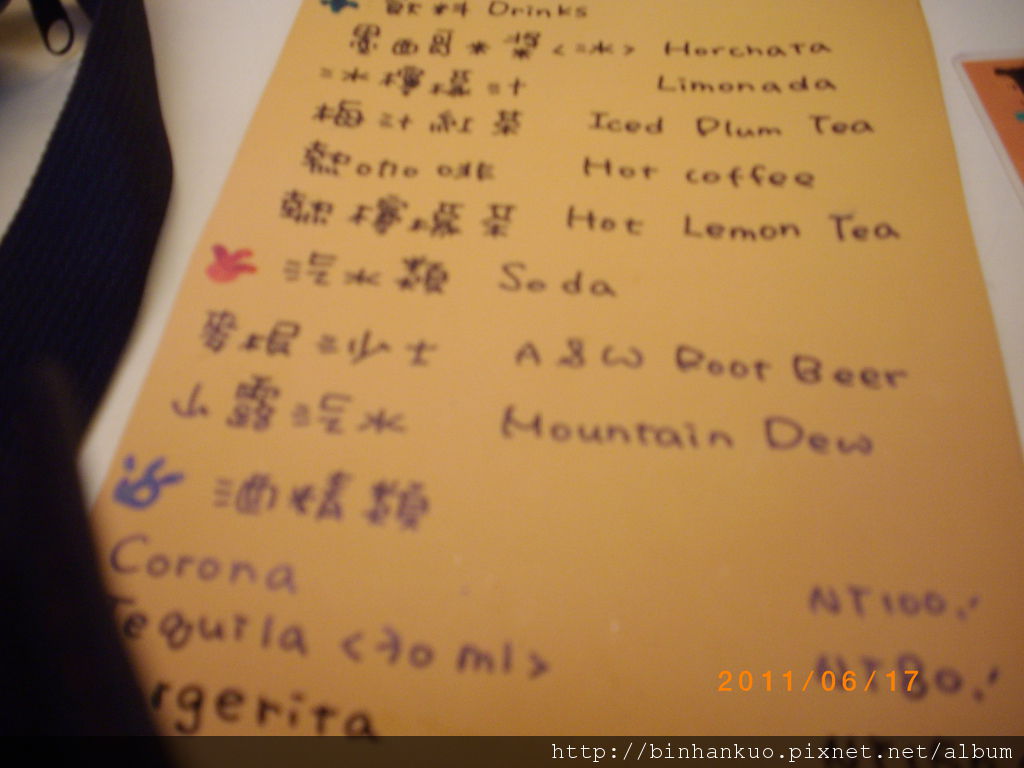 飲料 Drinks
墨西哥米漿<冰> Horchata
冰檸檬汁 Limonada
梅汁紅茶 Iced Plum Tea
熱咖啡 Hot coffee
熱檸檬茶 Hot Lemon Tea
汽水類 Soda
麥根沙士 A&W Root Beer
山露汽水 Mountain Dew
酒精類
Corona NT100.-
Tequila <30 ml> NT80.-
rgerita
2011/06/17
http://binhankuo.pixnet.net/album